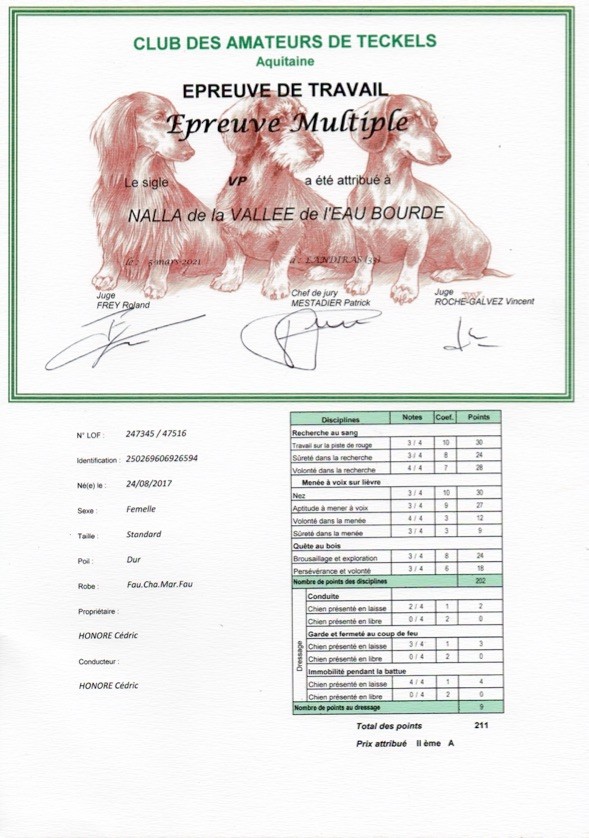 CLUB DES AMATEURS DE TECKELS
Aquitaine
EPREUVE DE TRAVAIL
Epreuve Multiple
Le sigle VP a été attribué à
NALLA de la VALLEE de l'EAU BOURDE
le : 5 mars 2021 à : LANDIRAS (33)
Juge
FREY Roland
Chef de jury
MESTADIER Patrick
Juge
ROCHE-GALVEZ Vincent
N° LOF : 247345 / 47516
Identification : 250269606926594
Né(e) le : 24/08/2017
Sexe : Femelle
Taille : Standard
Poil : Dur
Robe : Fau.Cha.Mar.Fau
Propriétaire :
HONORE Cédric
Conducteur :
HONORE Cédric
Disciplines Notes Coef. Points
Recherche au sang
Travail sur la piste de rouge 3 / 4 10 30
Sûreté dans la recherche 3 / 4 8 24
Volonté dans la recherche 4 / 4 7 28
Menée à voix sur lièvre
Nez 3 / 4 10 30
Aptitude à mener à voix 3 / 4 9 27
Volonté dans la menée 4 / 4 3 12
Sûreté dans la menée 3 / 4 3 9
Quête au bois
Broussaillage et exploration 3 / 4 8 24
Persévérance et volonté 3 / 4 6 18
Nombre de points des disciplines 202
Dressage
Conduite
Chien présenté en laisse 2 / 4 1 2
Chien présenté en libre 0 / 4 2 0
Garde et fermeté au coup de feu
Chien présenté en laisse 3 / 4 1 3
Chien présenté en libre 0 / 4 2 0
Immobilité pendant la battue
Chien présenté en laisse 4 / 4 1 4
Chien présenté en libre 0 / 4 2 0
Nombre de points au dressage 9
Total des points 211
Prix attribué II ème A